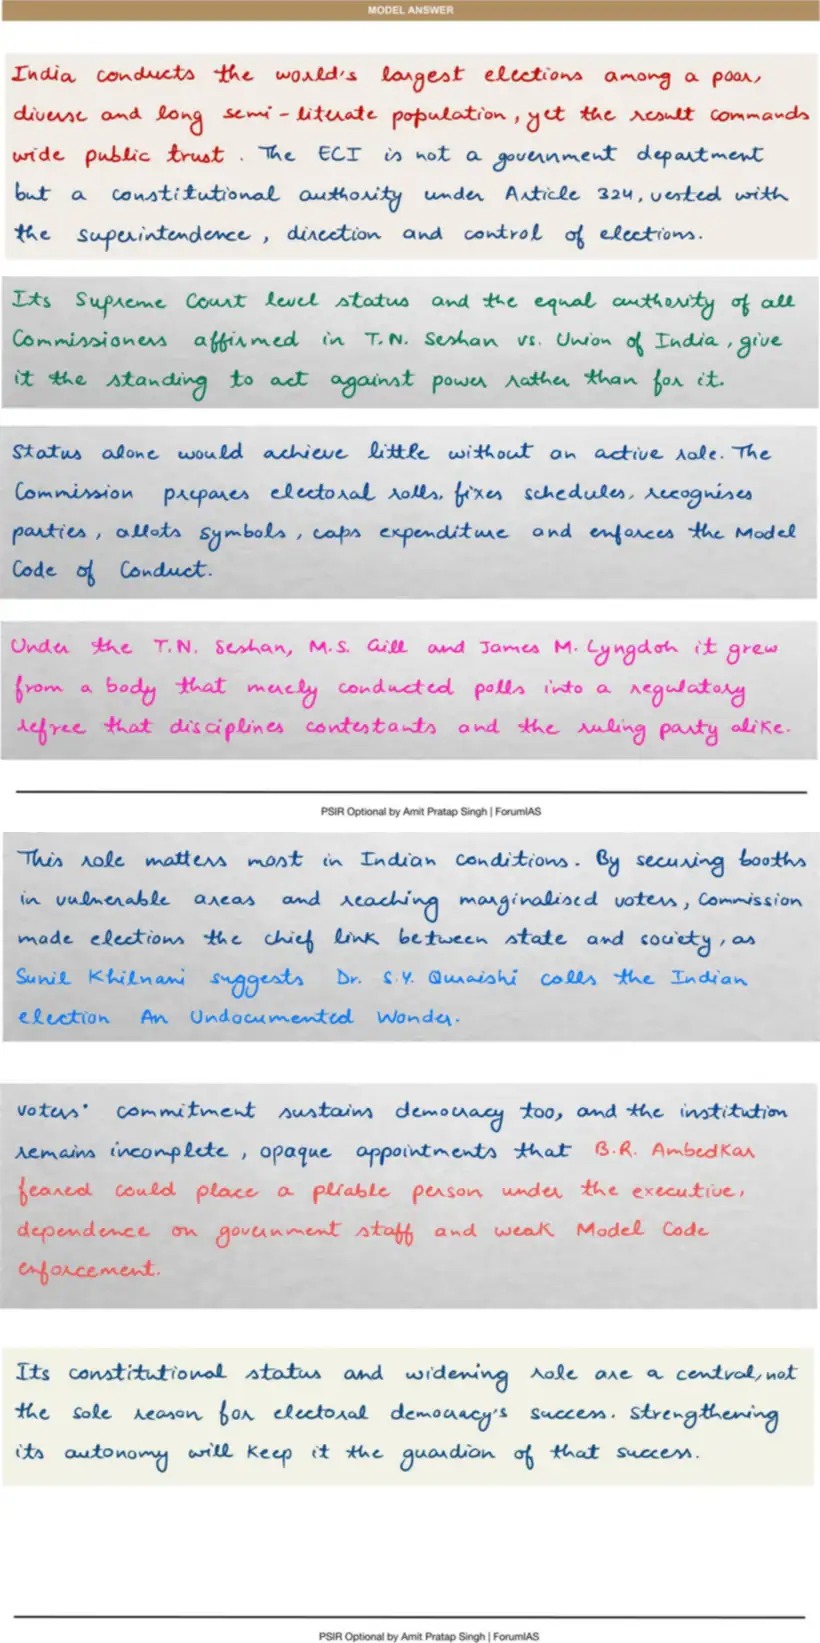 MODEL ANSWER
India conducts the world's largest elections among a poor,
diverse and long semi-literate population, yet the result commands
wide public trust. The ECI is not a government department
but a constitutional authority under Article 324, vested with
the superintendence, direction and control of elections.
Its Supreme Court level status and the equal authority of all
Commissioners affirmed in T.N. Seshan vs. Union of India, give
it the standing to act against power rather than for it.
Status alone would achieve little without an active role. The
Commission prepares electoral rolls, fixes schedules, recognises
parties, allots symbols, caps expenditure and enforces the Model
Code of Conduct.
Under the T.N. Seshan, M.S. Gill and James M. Lyngdoh it grew
from a body that merely conducted polls into a regulatory
refree that disciplines contestants and the ruling party alike.
PSIR Optional by Amit Pratap Singh | ForumIAS
This role matters most in Indian conditions. By securing booths
in vulnerable areas and reaching marginalised voters, Commission
made elections the chief link between state and society, as
Sunil Khilnani suggests Dr. S.Y. Quraishi calls the Indian
election An Undocumented Wonder.
voters' commitment sustains democracy too, and the institution
remains incomplete, opaque appointments that B.R. Ambedkar
feared could place a pliable person under the executive,
dependence on government staff and weak Model Code
enforcement.
Its constitutional status and widening role are a central, not
the sole reason for electoral democracy's success. Strengthening
its autonomy will keep it the guardian of that success.
PSIR Optional by Amit Pratap Singh | ForumIAS